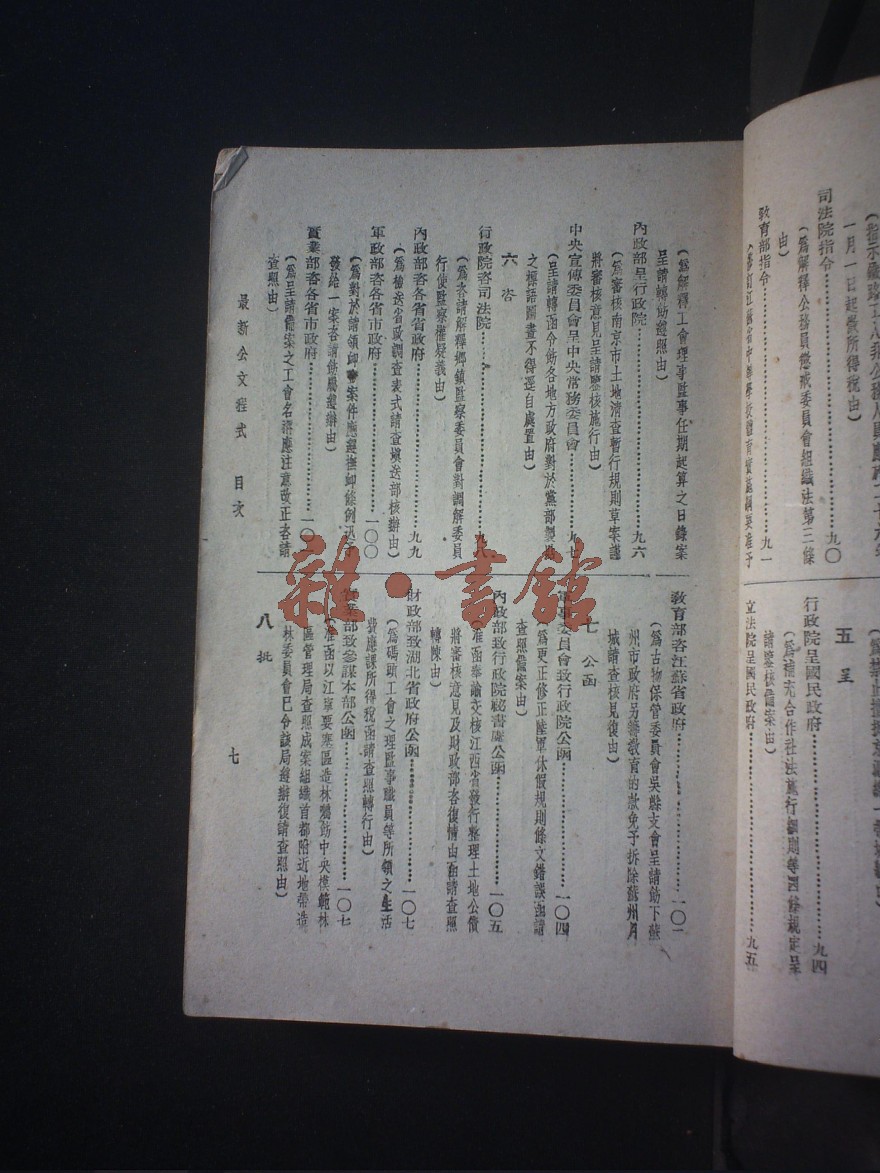 一月一日起徵所得稅由）
司法院指令……九〇
（爲解釋公務員懲戒委員會組織法第三條
由）
教育部指令……九一
五 呈
行政院呈國民政府……九四
（爲補充合作社法施行細則等四條規定呈
請鑒核備案由）
立法院呈國民政府……九五
（爲解釋工會理事監事任期起算之日錄案
呈請轉飭遵照由）
內政部呈行政院……九六
（爲審核南京市土地清查暫行規則草案謹
將審核意見呈請鑒核施行由）
中央宣傳委員會呈中央常務委員會……九七
（呈請轉函令飭各地方政府對於黨部製發
之標語圖畫不得逕自處置由）
六 咨
行政院咨司法院……九八
（爲咨請解釋鄉鎮監察委員會對調解委員
行使監察權疑義由）
內政部咨各省省政府……九九
（爲檢送省政調查表式請查塡送部核辦由）
軍政部咨各省市政府……一〇〇
（爲對於請領卹案件應遵撫卹條例
發給一案咨請飭屬遵辦由）
實業部咨各省市政府……一〇
（爲呈請備案之工會名稱應注意改正咨請
查照由）
教育部咨江蘇省政府……一〇二
（爲古物保管委員會吳縣支會呈請飭下蘇
州市政府另籌教育的款免予拆除蘇州月
城請查核見復由）
七 公函
軍事委員會致行政院公函……一〇四
（爲更正修正陸軍休假規則條文錯誤函請
查照備案由）
內政部致行政院祕書處公函……一〇五
（准函奉諭交核江西省發行整理土地公債
將審核意見及財政部咨復情由函請查照
轉陳由）
財政部致湖北省政府公函……一〇七
（爲碼頭工會之理監事職員等所領之生活
費應課所得稅函請查照轉行由）
實業部致參謀本部公函……一〇七
（准函以江寧要塞區造林囑飭中央模範林
區管理局查照成案組織首都附近地帶造
林委員會已令該局遵辦復請查照由）
八 批
最新公文程式 目次
七
雜·書館